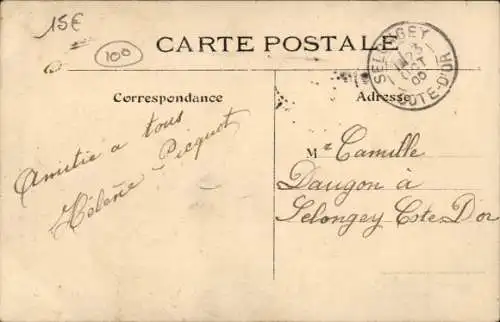 15€
100
CARTE POSTALE
SELONGEY
23
OCT
05
COTE-D'OR
Correspondance
Adresse
Amitié a tous
Hélène Picquot
Mr Camille
Daugon à
Selongey Cote d'or